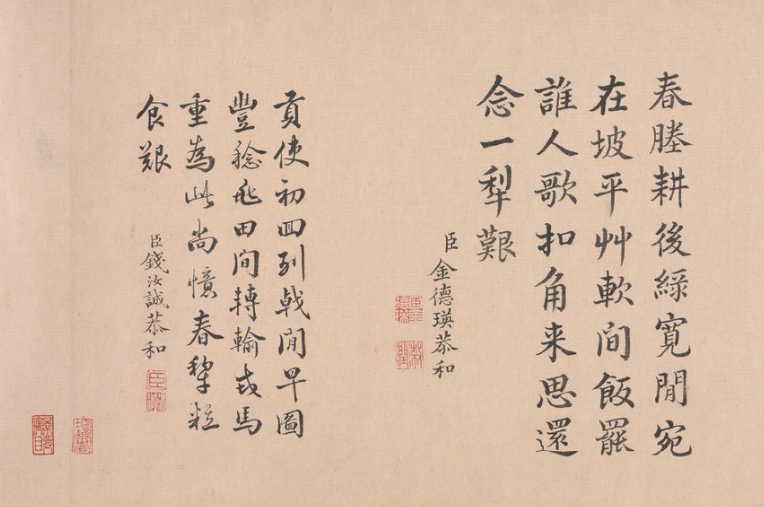 春塍耕後綠寬閒宛
在坡平艸軟間飯罷
誰人歌扣角来思還
念一犁艱
臣金德瑛恭和
貢使初回列戟閒早圖
豐稔在田間轉輸戎馬
重為此尚憶春犂粒
食艱
臣錢汝誠恭和